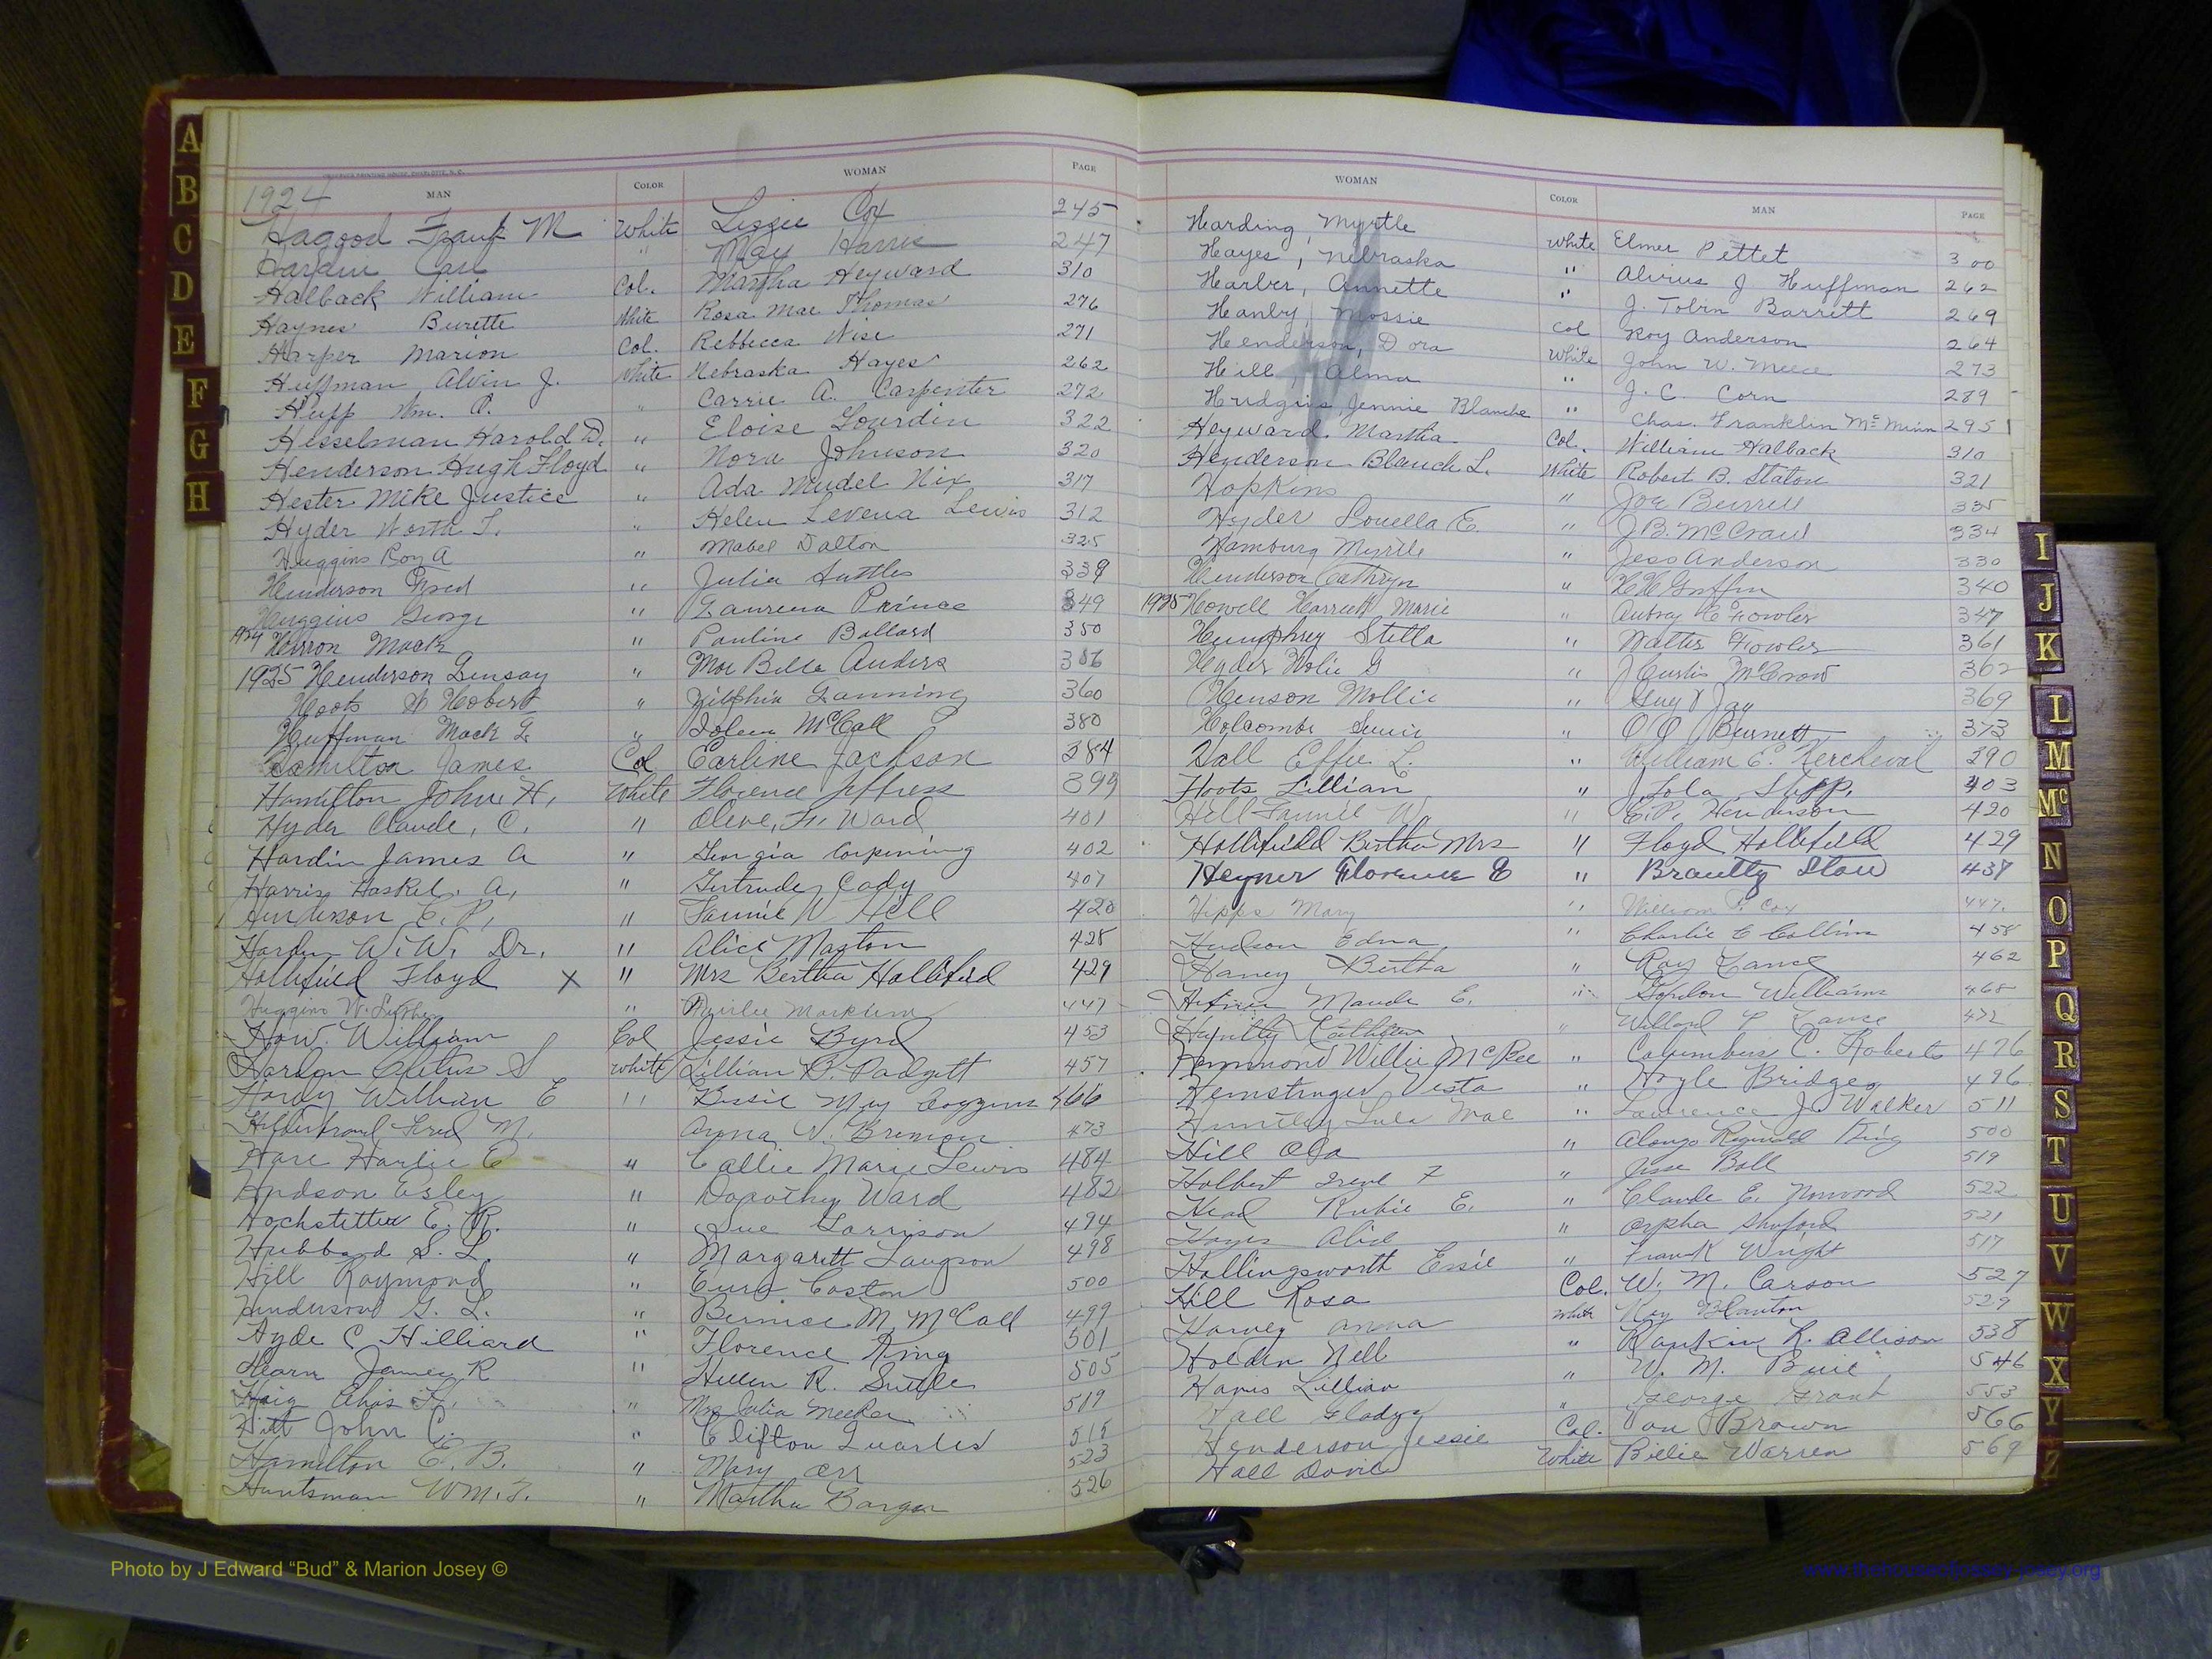 OBSERVER PRINTING HOUSE, CHARLOTTE, N. C.
1924 MAN COLOR WOMAN PAGE
Hagood Frank M White Lissie Cox 245
Hardin Carl " May Harris 247
Halback William Col. Martha Heyward 310
Haynes Burette White Rosa Mae Thomas 276
Harper Marion Col. Rebbecca Wise 271
Huffman Alvin J. White Nebraska Hayes 262
Huff Wm. " Carrie A. Carpenter 272
Hesselman Harold D. " Eloise Gourdin 322
Henderson Hugh Floyd " Nora Johnson 320
Hester Mike Justice " Ada Mudel Nix 317
Hyder Worth T. " Helen Levena Lewis 312
Huggins Roy A " Mabel Dalton 325
Henderson Fred " Julia Suttles 339
Huggins George " Laurena Prince 349
1924 Herron Mack " Pauline Ballard 350
1925 Henderson Linsay " Mae Belle Anders 356
Hoots Hobert " Lanning 360
Huffman Mack L. " McCall 380
Hamilton James Col Earline Jackson 384
Hamilton John H. White Florence Jeffress 399
Hyder Claude, C. " Olive, Fr. Ward 401
Hardin James A " Georgia Corpening 402
Harris Haskel. A, " Gertrude Cady 407
Henderson E. P. " Fannie W Hill 420
Hardin W. W. Dr. " Alice Maxton 425
Hollifield Floyd X " Mrs Bertha Hollifield 429
Huggins W. Luther " Markham 447
How. William Col Jessie Byrd 453
Hordon Cletus S White Lillian B. Padgett 457
Hardy William E " Bessie May Coggins 466
Hilderbrand Fred M. Anna V. Bremon 473
Hare Harlie E " Callie Marie Lewis 484
Hudson Esley " Dorothy Ward 482
Hochstetter E. R. " Sue Garrison 494
Hubbard S. L. " Margarett Langson 498
Hill Raymond " Eura Coston 500
Henderson G. L. " Bernice M. McCall 499
Hyde C Hilliard " Florence King 501
Hearn James R " Hellen R. Suttle 505
Haig Chas H. " Mrs Julia Meeker 519
Hitt John C. " Clifton Quarles 515
Hamilton E. B. " Mary Orr 523
Huntsman Wm. T. " Martha Barger 526
WOMAN COLOR MAN PAGE
Harding, Myrtle White Elmer Pettet 300
Hayes, Nebraska " Alvius J Huffman 262
Harber, Annette " J. Tobin Barrett 269
Hanby, Mossie Col Roy Anderson 264
Henderson, Dora White John W. Meece 273
Hill, Alma " J. C. Corn 289
Hudgins, Jennie Blanche " Chas. Franklin McMinn 295
Heyward. Martha Col. William Halback 310
Henderson Blanch L. White Robert B. Staton 321
Hopkins " Joe Burrell 335
Hyder Louella E. " J. B. McCraw 334
Hamburg Myrtle " Jess Anderson 330
Henderson Cathryn " H H Griffin 340
1925 Howell Harriett Marie " Autry C Fowler 347
Humphrey Stella " Walter Fowler 361
Hyder Holie G " J Curtis McCrow 362
Henson Mollie " Guy Jay 369
Holcombe " O O Burnett 373
Hall Effie L. " William E. Kercheval 390
Hoots Lillian " J. Lola Stepp. 403
Hill Fannie W. " E. P. Henderson 420
Hollifield Bertha Mrs " Floyd Hollifield 429
Heyner Florence E " Brantly Stow 437
Hipps Mary " William F. Cox 447.
Hudson Edna " Charlie C Collins 458
Haney Bertha " Roy Lance 462
Maude E. " Gordon Williams 465
Huntly Cathleen " Willard P Lance 472
Hammond Willie McKee " Columbus C. Roberts 476
Hemstinger Vesta " Hoyle Bridges 496
Huntley Lula Mae " Lawrence J. Walker 511
Hill Ola " Alonzo Reginald King 500
Holbert Irene F " Jesse Ball 519
Head Rubie E. " Claude E. Norwood 522
Alice " Orpha Shuford 521
Hollingsworth Essie " Frank Wright 517
Hill Rosa Col. W. M. Carson 527
Harvey Anna White Roy Blanton 529
Holden Nell " Rankin R. Allison 538
Harris Lillian " W. M. Buie 546
Hall Gladys " George Grant 553
Henderson Jessie Col. Van Brown 566
Hall Dovie White Billie Warren 569
A
B
C
D
E
F
G
H
I
J
K
L
M
Mc
N
O
P
Q
R
S
T
U
V
W
X
Y
Z
Photo by J Edward “Bud” & Marion Josey ©